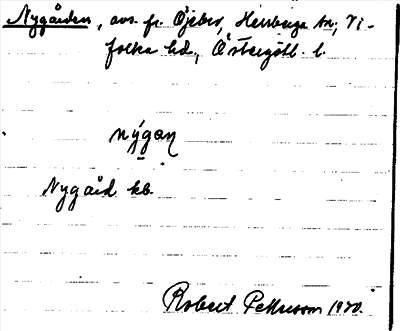 Nygården, avs. fr. Öjebro, Herrberga sn, Vi-
folka hd., Östergötl. l.
nýgaṇ
Nygård kb.
Robert Pettersson 1970.